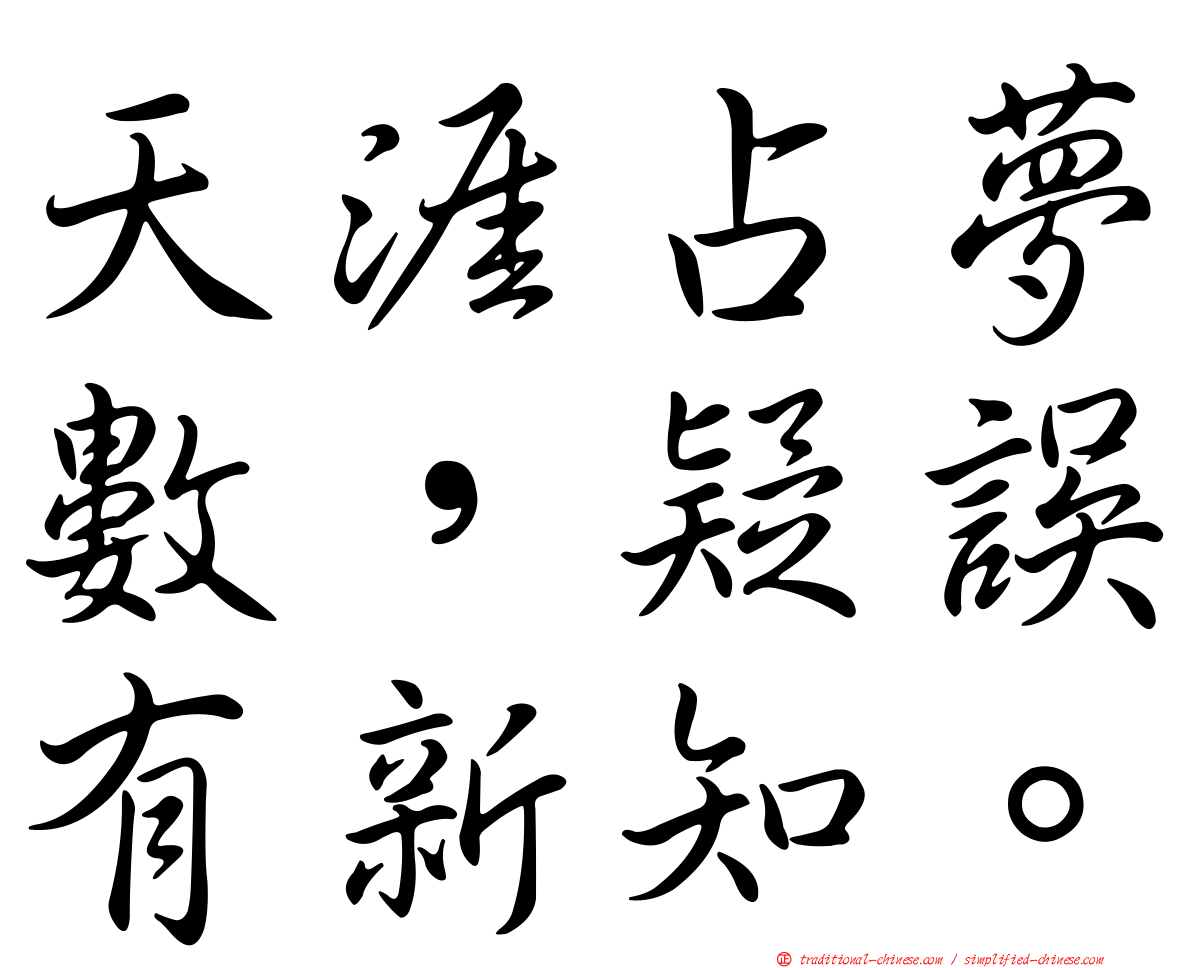 天涯占夢
數，疑誤
有新知。
正 traditional-chinese.com / simplified-chinese.com